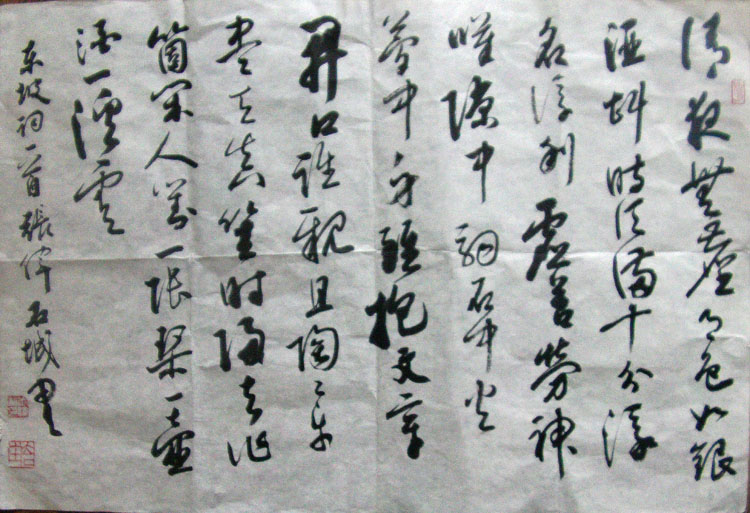 清夜無塵月色如銀
酒斟時須滿十分浮
名浮利虛苦勞神
嘆隙中駒石中火
夢中身雖抱文章
開口誰親且陶〻樂
盡天真時歸去作
箇閑人對一張琴一壺
酒一溪雲
东坡词一首張偉石城